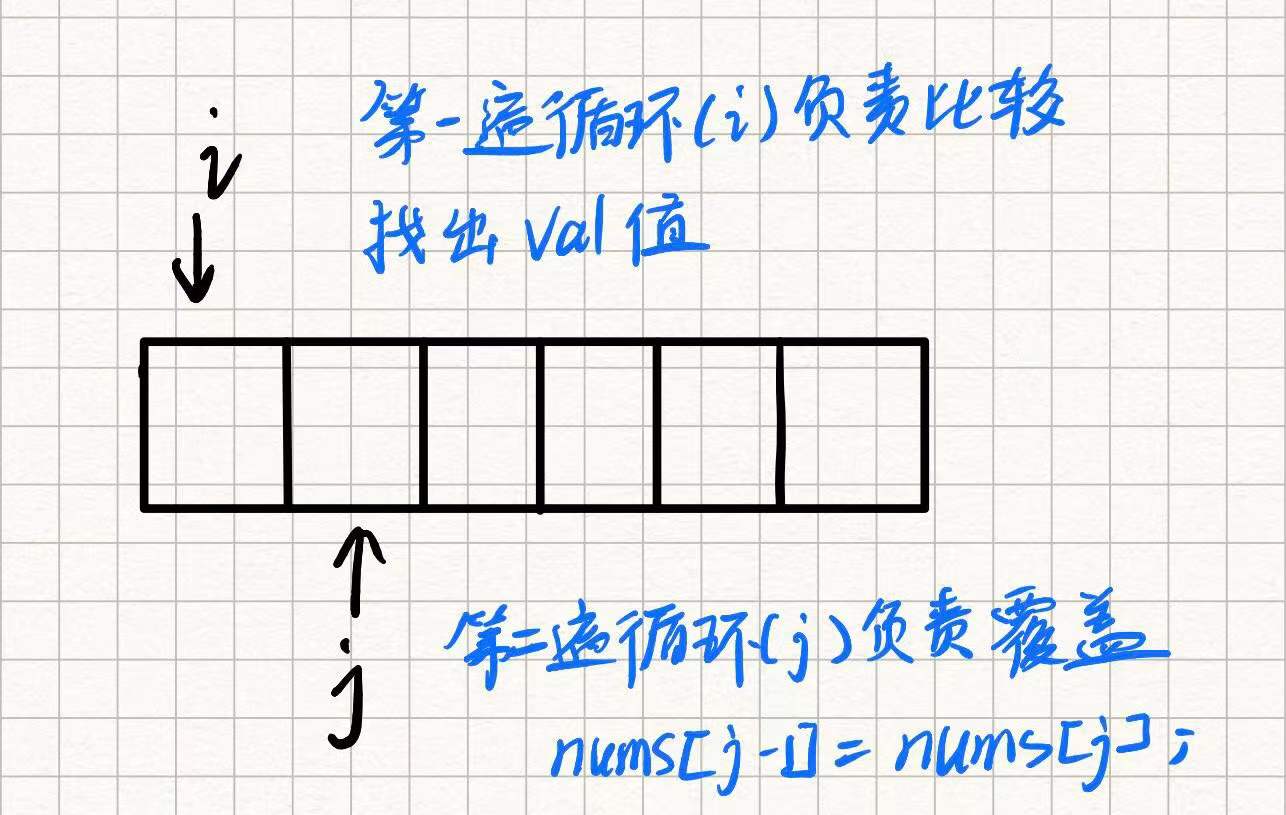 i
第一遍循环(i)负责比较
找出val值
第二遍循环(j)负责覆盖
j
nums[j-1]=nums[j];